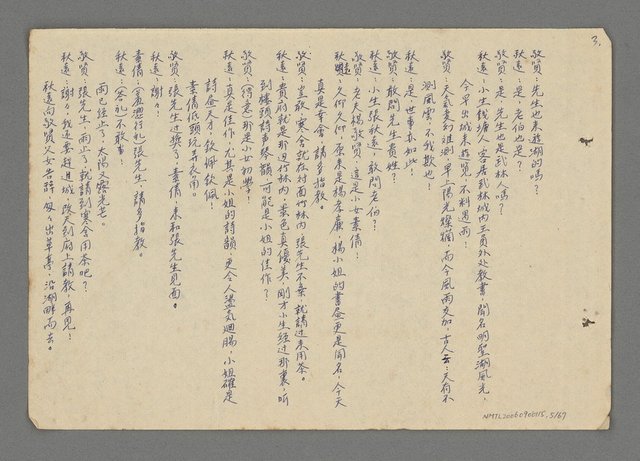 3.
敬賢：先生也來遊湖的嗎？
秋遠：是，老伯也是？
敬賢：是，先生也是武林人嗎？
秋遠：小生錢塘人，客居武林城內王員外處教書，聞名明聖湖風光，
今早出城來遊覽，不料遇雨！
敬賢：天氣變幻難測，早上陽光燦爛，而今風雨交加，古人云：天有不
測風雲，不我欺也！
秋遠：是，世事本如此！
敬賢：敢問先生貴姓？
秋遠：小生張秋遠，敢問老伯？
敬賢：老夫楊敬賢，這是小女素倩！
秋遠：久仰久仰，原來是楊孝廉，楊小姐的書畫更是聞名，今天
真是幸會，請多指教。
敬賢：豈敢，寒舍就在对面竹林內，張先生不棄，就請过來用茶。
秋遠：貴府就是那边竹林內，景色真優美，剛才小生经过那裏，听
到樓頭詩聲琴韻，可能是小姐的佳作？
敬賢：(得意)那是小女初学！
秋遠：真是佳作，尤其是小姐的詩韻，更令人盪気迴腸，小姐確是
詩畫天才，欽佩欽佩！
素倩低頭玩弄衣角。
敬賢：張先生过奖了，素倩，來和張先生見面。
秋遠：謝謝。
素倩：(羞澀行礼)張先生，請多指教。
秋遠：(答礼)不敢事！
雨已经止了，太陽又露光芒。
敬賢：張先生，雨止了，就請到寒舍用茶吧？
秋遠：謝謝，我还要趕進城，改天到府上請教，再見！
秋遠向敬賢父女告辞，匆匆出草亭，沿湖畔而去。
NMTL20060900115, 5/67